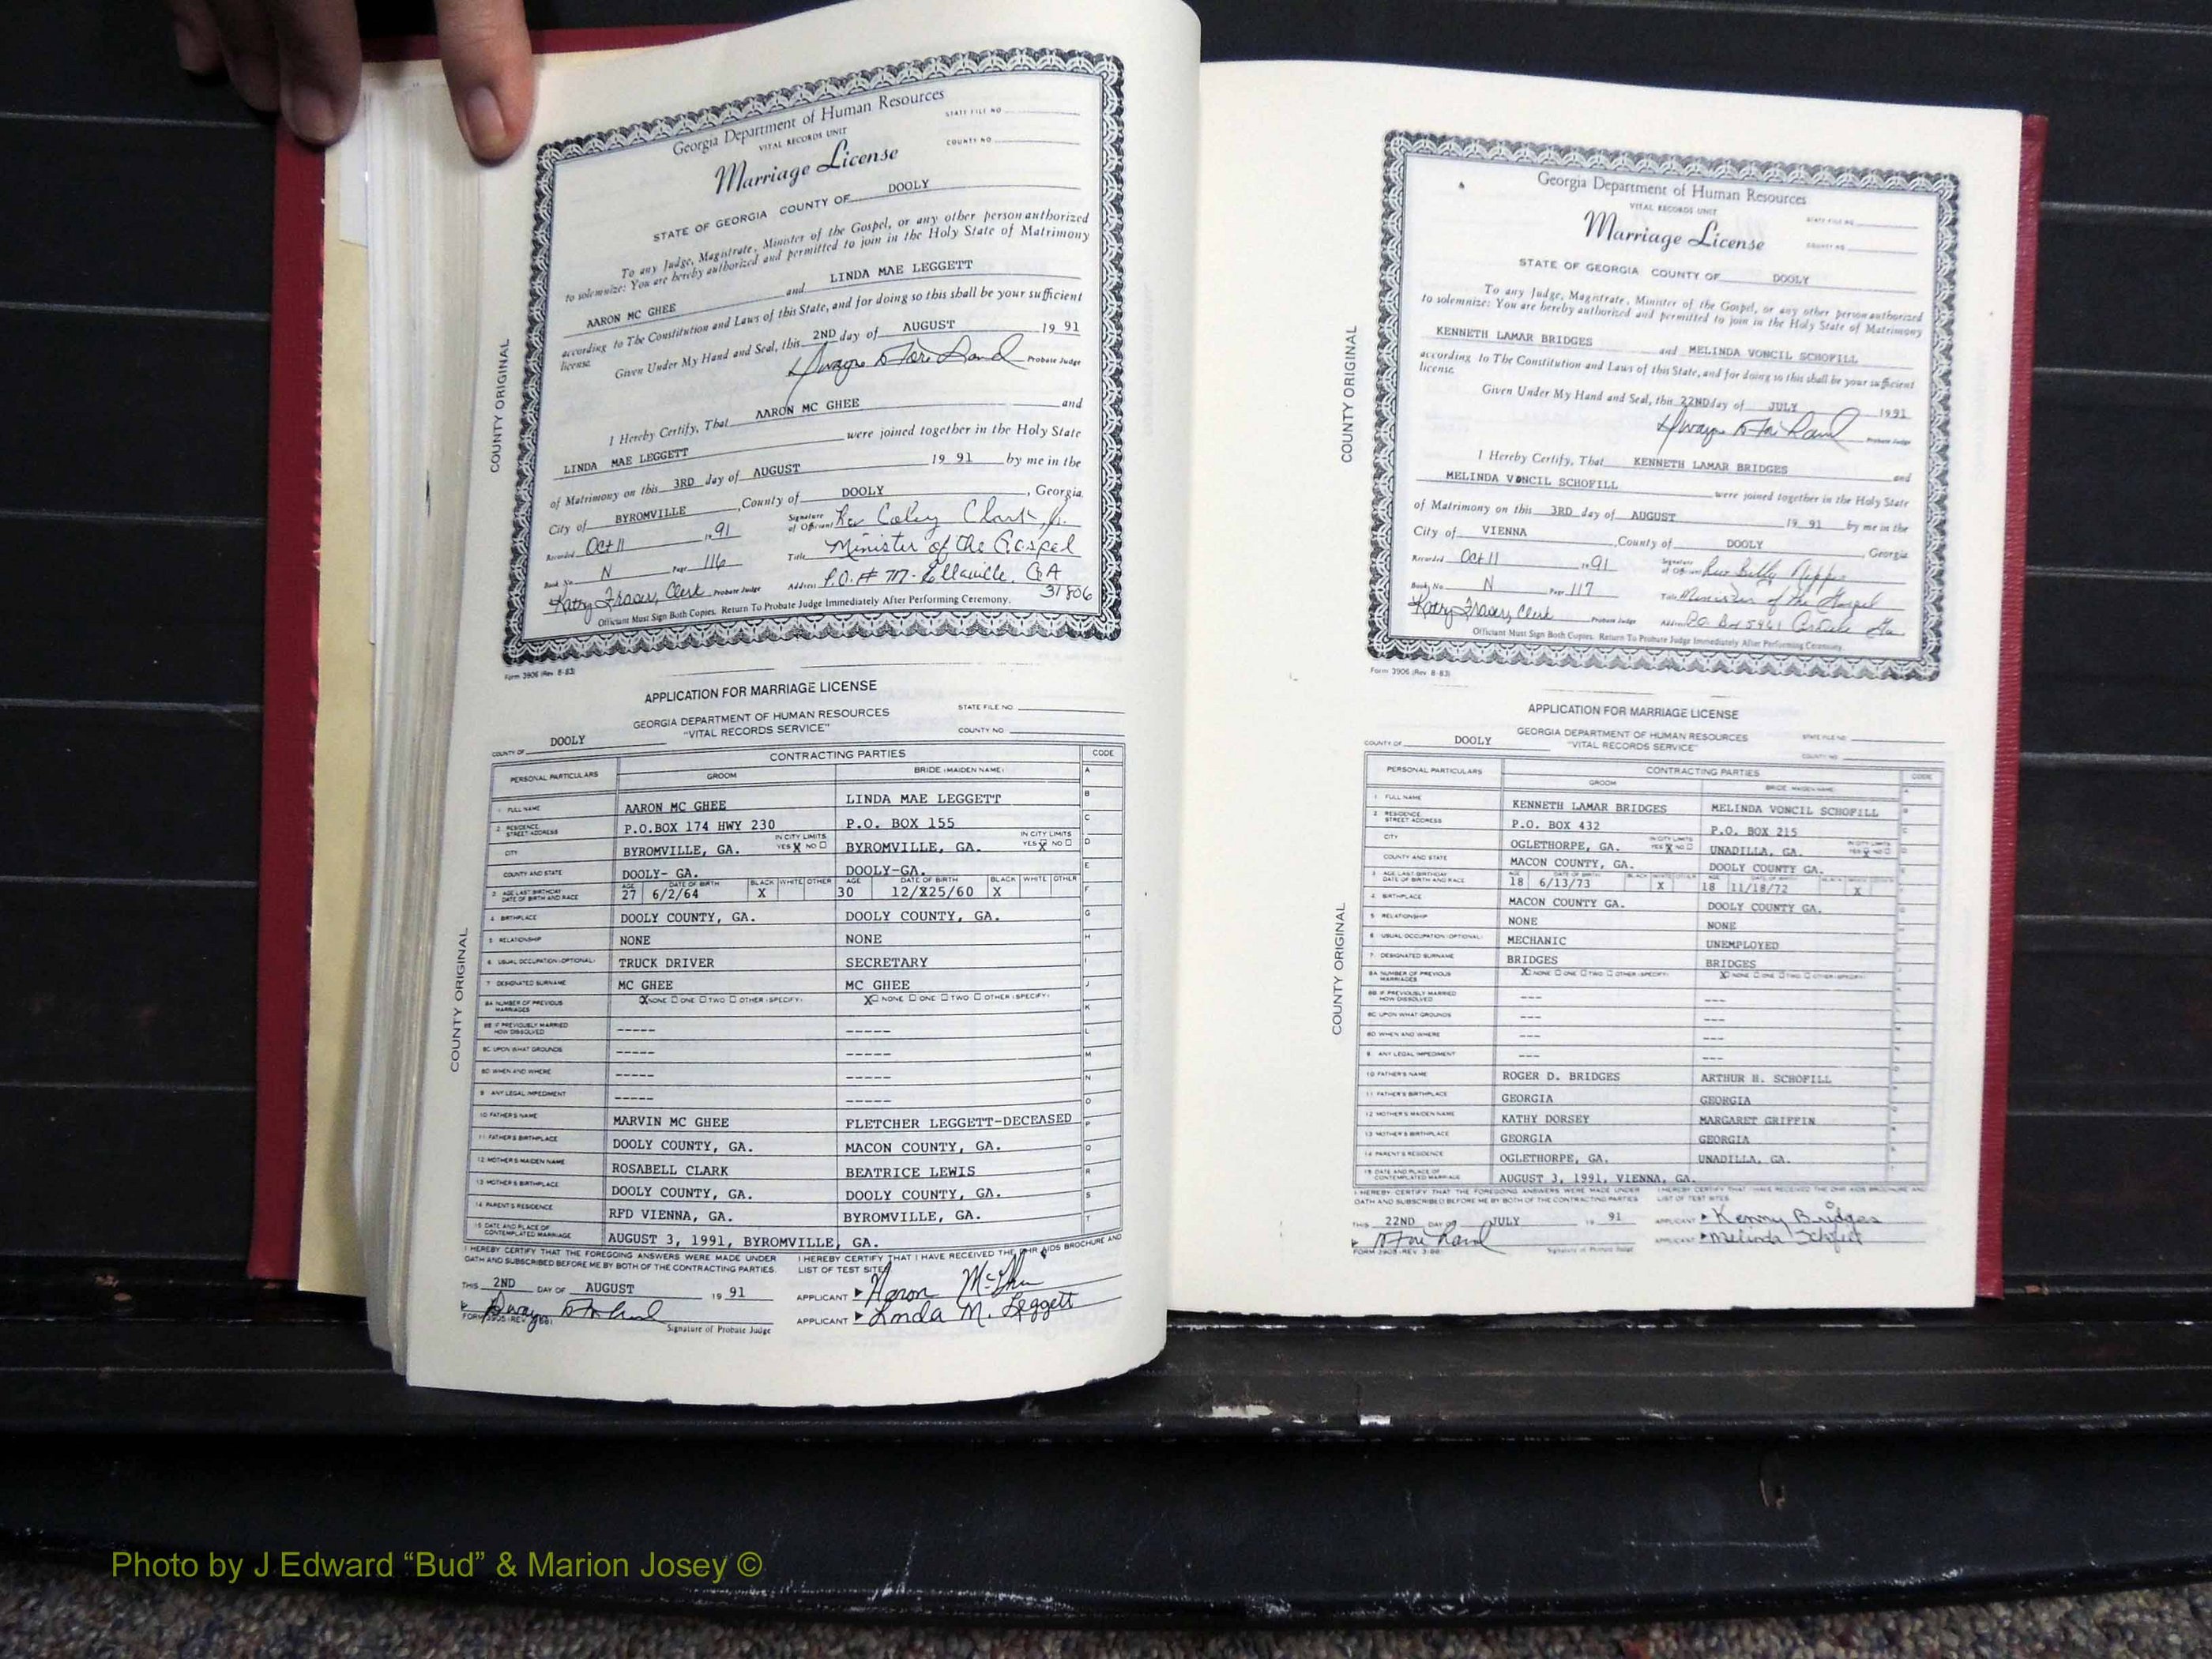 Georgia Department of Human Resources
VITAL RECORDS UNIT
STATE FILE NO
COUNTY NO
Marriage License
STATE OF GEORGIA COUNTY OF DOOLY
To any Judge, Magistrate, Minister of the Gospel, or any other person authorized
to solemnize: You are hereby authorized and permitted to join in the Holy State of Matrimony
AARON MC GHEE and LINDA MAE LEGGETT
according to The Constitution and Laws of this State, and for doing so this shall be your sufficient
license.
Given Under My Hand and Seal, this 2ND day of AUGUST 19 91
Probate Judge
I Hereby Certify, That AARON MC GHEE and
LINDA MAE LEGGETT were joined together in the Holy State
of Matrimony on this 3RD day of AUGUST 19 91 by me in the
City of BYROMVILLE, County of DOOLY, Georgia
Recorded Oct 11 19 91 Signature of Officiant Rev Coley Clark, Jr.
Title Minister of the Gospel
Book No N Page 116 Address P.O. # 717 - Ellaville, GA 31806
Kathy Fraser, Clerk Probate Judge
Officiant Must Sign Both Copies. Return To Probate Judge Immediately After Performing Ceremony.
COUNTY ORIGINAL
Form 3906 (Rev. 8-83)
APPLICATION FOR MARRIAGE LICENSE
GEORGIA DEPARTMENT OF HUMAN RESOURCES
"VITAL RECORDS SERVICE"
STATE FILE NO.
COUNTY NO.
COUNTY OF DOOLY
PERSONAL PARTICULARS CONTRACTING PARTIES CODE
GROOM BRIDE (MAIDEN NAME)
1 FULL NAME AARON MC GHEE LINDA MAE LEGGETT
2 RESIDENCE STREET ADDRESS P.O.BOX 174 HWY 230 P.O. BOX 155
CITY BYROMVILLE, GA. IN CITY LIMITS YES X NO BYROMVILLE, GA. IN CITY LIMITS YES X NO
COUNTY AND STATE DOOLY- GA. DOOLY-GA.
3 AGE LAST BIRTHDAY DATE OF BIRTH AND RACE AGE 27 DATE OF BIRTH 6/2/64 BLACK X WHITE OTHER AGE 30 DATE OF BIRTH 12/25/60 BLACK X WHITE OTHER
4 BIRTHPLACE DOOLY COUNTY, GA. DOOLY COUNTY, GA.
5 RELATIONSHIP NONE NONE
6 USUAL OCCUPATION (OPTIONAL) TRUCK DRIVER SECRETARY
7 DESIGNATED SURNAME MC GHEE MC GHEE
8A NUMBER OF PREVIOUS MARRIAGES X NONE ONE TWO OTHER (SPECIFY) X NONE ONE TWO OTHER (SPECIFY)
8B IF PREVIOUSLY MARRIED HOW DISSOLVED ----- -----
8C UPON WHAT GROUNDS ----- -----
8D WHEN AND WHERE ----- -----
9 ANY LEGAL IMPEDIMENT ----- -----
10 FATHER'S NAME MARVIN MC GHEE FLETCHER LEGGETT-DECEASED
11 FATHER'S BIRTHPLACE DOOLY COUNTY, GA. MACON COUNTY, GA.
12 MOTHER'S MAIDEN NAME ROSABELL CLARK BEATRICE LEWIS
13 MOTHER'S BIRTHPLACE DOOLY COUNTY, GA. DOOLY COUNTY, GA.
14 PARENT'S RESIDENCE RFD VIENNA, GA. BYROMVILLE, GA.
15 DATE AND PLACE OF CONTEMPLATED MARRIAGE AUGUST 3, 1991, BYROMVILLE, GA.
A
B
C
D
E
F
G
H
I
J
K
L
M
N
O
P
Q
R
S
T
I HEREBY CERTIFY THAT THE FOREGOING ANSWERS WERE MADE UNDER
OATH AND SUBSCRIBED BEFORE ME BY BOTH OF THE CONTRACTING PARTIES.
I HEREBY CERTIFY THAT I HAVE RECEIVED THE DHR AIDS BROCHURE AND
LIST OF TEST SITES.
THIS 2ND DAY OF AUGUST 19 91
APPLICANT Aaron McGhee
APPLICANT Linda M. Leggett
Signature of Probate Judge
COUNTY ORIGINAL
Georgia Department of Human Resources
VITAL RECORDS UNIT
STATE FILE NO
COUNTY NO
Marriage License
STATE OF GEORGIA COUNTY OF DOOLY
To any Judge, Magistrate, Minister of the Gospel, or any other person authorized
to solemnize: You are hereby authorized and permitted to join in the Holy State of Matrimony
KENNETH LAMAR BRIDGES and MELINDA VONCIL SCHOFILL
according to The Constitution and Laws of this State, and for doing so this shall be your sufficient
license.
Given Under My Hand and Seal, this 22ND day of JULY 19 91
Probate Judge
I Hereby Certify, That KENNETH LAMAR BRIDGES and
MELINDA VONCIL SCHOFILL were joined together in the Holy State
of Matrimony on this 3RD day of AUGUST 19 91 by me in the
City of VIENNA, County of DOOLY, Georgia
Recorded Oct 11 19 91 Signature of Officiant Rev Billy
Book No N Page 117 Title Minister of the Gospel
Kathy Fraser, Clerk Probate Judge Address P.O. Box 5961 Cordele Ga
Officiant Must Sign Both Copies. Return To Probate Judge Immediately After Performing Ceremony.
COUNTY ORIGINAL
Form 3906 (Rev. 8-83)
APPLICATION FOR MARRIAGE LICENSE
GEORGIA DEPARTMENT OF HUMAN RESOURCES
"VITAL RECORDS SERVICE"
STATE FILE NO.
COUNTY NO.
COUNTY OF DOOLY
PERSONAL PARTICULARS CONTRACTING PARTIES CODE
GROOM BRIDE (MAIDEN NAME)
1 FULL NAME KENNETH LAMAR BRIDGES MELINDA VONCIL SCHOFILL
2 RESIDENCE STREET ADDRESS P.O. BOX 432 P.O. BOX 215
CITY OGLETHORPE, GA. IN CITY LIMITS YES X NO UNADILLA, GA. IN CITY LIMITS YES X NO
COUNTY AND STATE MACON COUNTY, GA. DOOLY COUNTY GA.
3 AGE LAST BIRTHDAY DATE OF BIRTH AND RACE 18 6/13/73 X 18 11/18/72 X
4 BIRTHPLACE MACON COUNTY GA. DOOLY COUNTY GA.
5 RELATIONSHIP NONE NONE
6 USUAL OCCUPATION (OPTIONAL) MECHANIC UNEMPLOYED
7 DESIGNATED SURNAME BRIDGES BRIDGES
8A NUMBER OF PREVIOUS MARRIAGES X NONE ONE TWO OTHER (SPECIFY) X NONE ONE TWO OTHER (SPECIFY)
8B IF PREVIOUSLY MARRIED HOW DISSOLVED --- ---
8C UPON WHAT GROUNDS --- ---
8D WHEN AND WHERE --- ---
9 ANY LEGAL IMPEDIMENT --- ---
10 FATHER'S NAME ROGER D. BRIDGES ARTHUR H. SCHOFILL
11 FATHER'S BIRTHPLACE GEORGIA GEORGIA
12 MOTHER'S MAIDEN NAME KATHY DORSEY MARGARET GRIFFIN
13 MOTHER'S BIRTHPLACE GEORGIA GEORGIA
14 PARENT'S RESIDENCE OGLETHORPE, GA. UNADILLA, GA.
15 DATE AND PLACE OF CONTEMPLATED MARRIAGE AUGUST 3, 1991, VIENNA, GA.
I HEREBY CERTIFY THAT THE FOREGOING ANSWERS WERE MADE UNDER
OATH AND SUBSCRIBED BEFORE ME BY BOTH OF THE CONTRACTING PARTIES
I HEREBY CERTIFY THAT I HAVE RECEIVED THE DHR AIDS BROCHURE AND
LIST OF TEST SITES.
THIS 22ND DAY OF JULY 19 91
APPLICANT Kenny Bridges
APPLICANT Melinda Schofill
Signature of Probate Judge
COUNTY ORIGINAL
Photo by J Edward “Bud” & Marion Josey ©